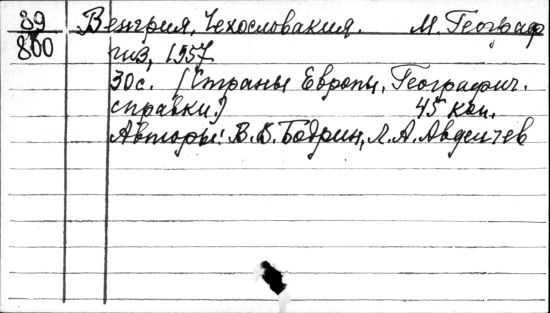 89 Венгрия, Чехословакия. М. Географ
800 гиз, 1957
30с. (Страны Европы, Географич.
справки.) 45 коп.
Авторы: В.В. Бодрин, Л.А. Авдеичев